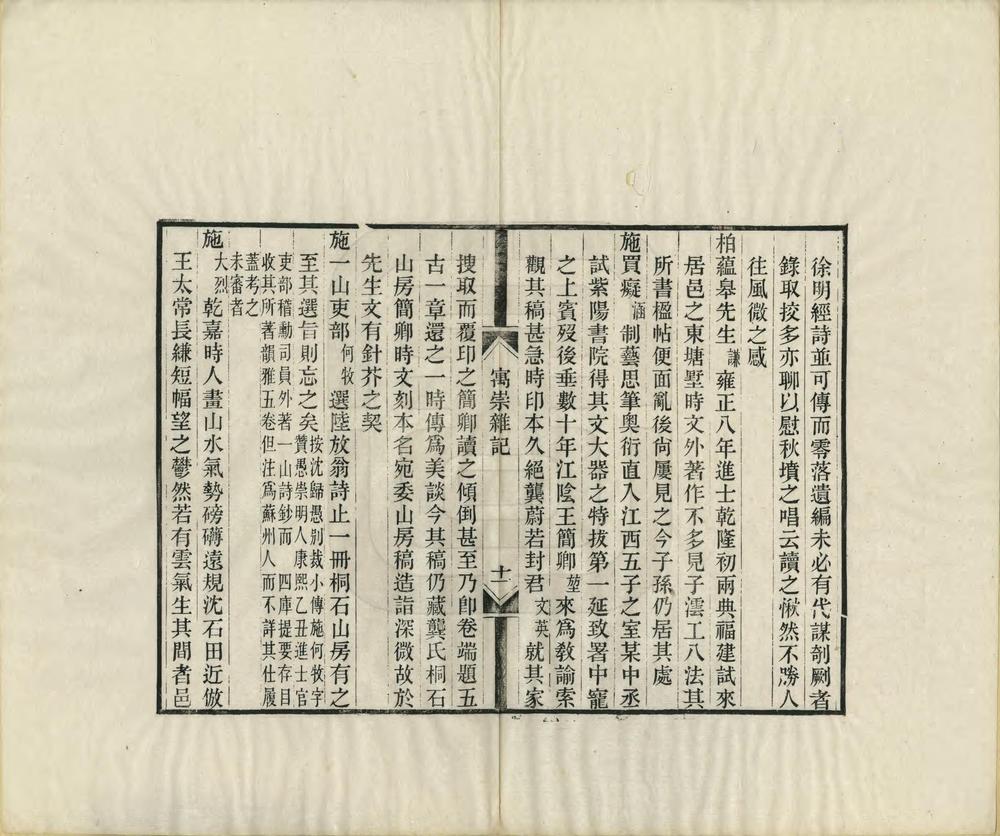 徐明經詩並可傳而零落遺編未必有代謀剞劂者
錄取挍多亦聊以慰秋墳之唱云讀之愀然不勝人
往風微之感
柏蘊皋先生謙雍正八年進士乾隆初兩典福建試來
居邑之東塘墅時文外著作不多見子澐工八法其
所書楹帖便面亂後尙屢見之今子孫仍居其處
施買癡涵制藝思筆奧衍直入江西五子之室某中丞
試紫陽書院得其文大器之特拔第一延致署中寵
之上賓歿後垂數十年江陰王簡卿堃來爲敎諭索
觀其稿甚急時印本久絕龔蔚若封君文英就其家
寓崇雜記
十一
搜取而覆印之簡卿讀之傾倒甚至乃卽卷端題五
古一章還之一時傳爲美談今其稿仍藏龔氏桐石
山房簡卿時文刻本名宛委山房稿造詣深微故於
先生文有針芥之契
施一山吏部何牧選陸放翁詩止一冊桐石山房有之
至其選旨則忘之矣按沈歸愚別裁小傳施何牧字
贊愚崇明人康熙乙丑進士官
吏部稽勳司員外著一山詩鈔而四庫提要存目
收其所著韻雅五卷但注爲蘇州人而不詳其仕履
蓋考之
未審者
施大烈乾嘉時人畫山水氣勢磅礴遠規沈石田近倣
王太常長縑短幅望之鬱然若有雲氣生其間者邑